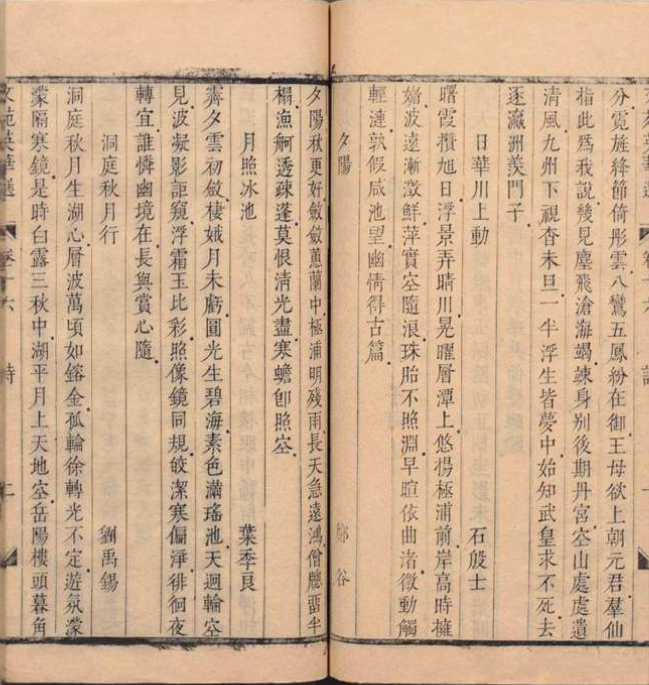 分霓旌絳節倚彤雲八鸞五鳳紛在御王母欲上朝元君羣仙
指此爲我說幾見塵飛滄海竭竦身别後期丹宮空山處處遺
清風九州下視杳未旦一半浮生皆夢中始知武皇求不死去
逐瀛洲羨門子
日華川上動 石殷士
曙霞攢旭日浮景弄晴川晃曜層潭上悠揚極浦前岸高時擁
媚波遠漸澂鮮萍實空隨浪珠胎不照淵早暄依曲渚微動觸
輕漣孰假咸池望幽情得古篇
夕陽 鄭谷
夕陽秋更好斂斂蕙蘭中極浦明殘雨長天急遠鴻僧牕畱半
榻漁舸透疎蓬莫恨清光盡寒蟾卽照空
月照冰池 葉季良
霽夕雲初斂棲娥月未虧圓光生碧海素色滿瑤池天迥輪空
見波凝影詎窺浮霜玉比彩照像鏡同規皎潔寒偏淨徘徊夜
轉宜誰憐幽境在長與賞心隨
洞庭秋月行 劉禹錫
洞庭秋月生湖心層波萬頃如鎔金孤輪徐轉光不定遊氛濛
濛隔寒鏡是時白露三秋中湖平月上天地空岳陽樓頭暮角
文苑英華選 卷十六 詩 二